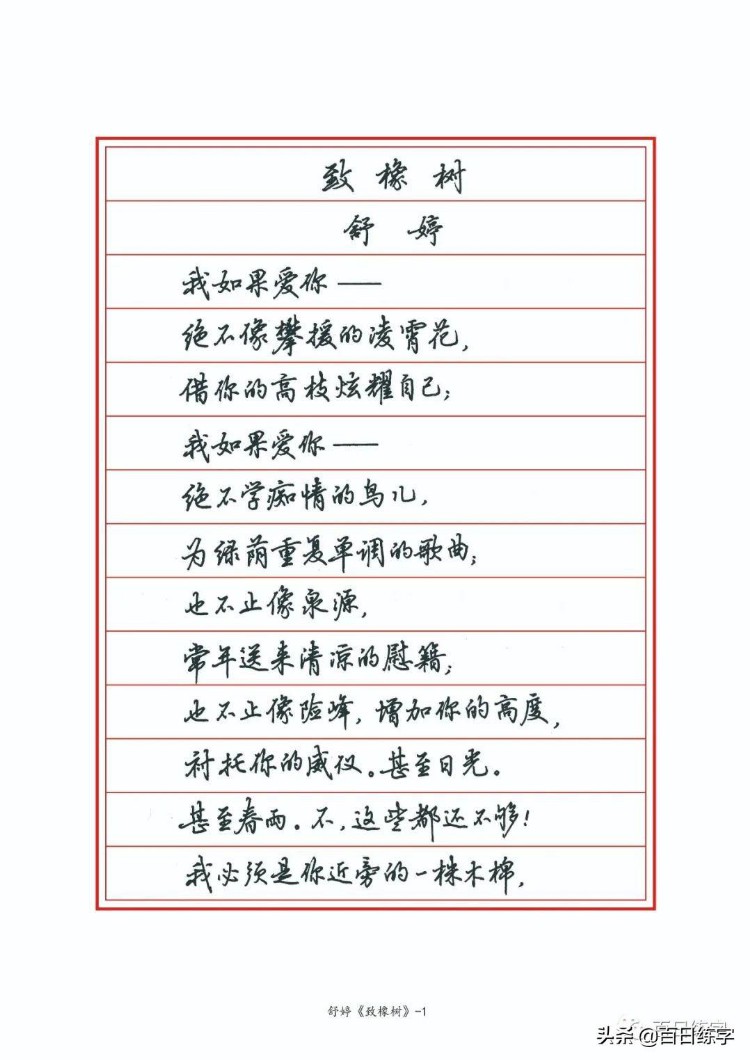 致橡树
舒婷
我如果爱你——
绝不像攀援的凌霄花，
借你的高枝炫耀自己；
我如果爱你——
绝不学痴情的鸟儿，
为绿荫重复单调的歌曲；
也不止像泉源，
常年送来清凉的慰籍；
也不止像险峰，增加你的高度，
衬托你的威仪。甚至日光。
甚至春雨。不，这些都还不够！
我必须是你近旁的一株木棉，
舒婷《致橡树》-1
百日练字
头条@百日练字